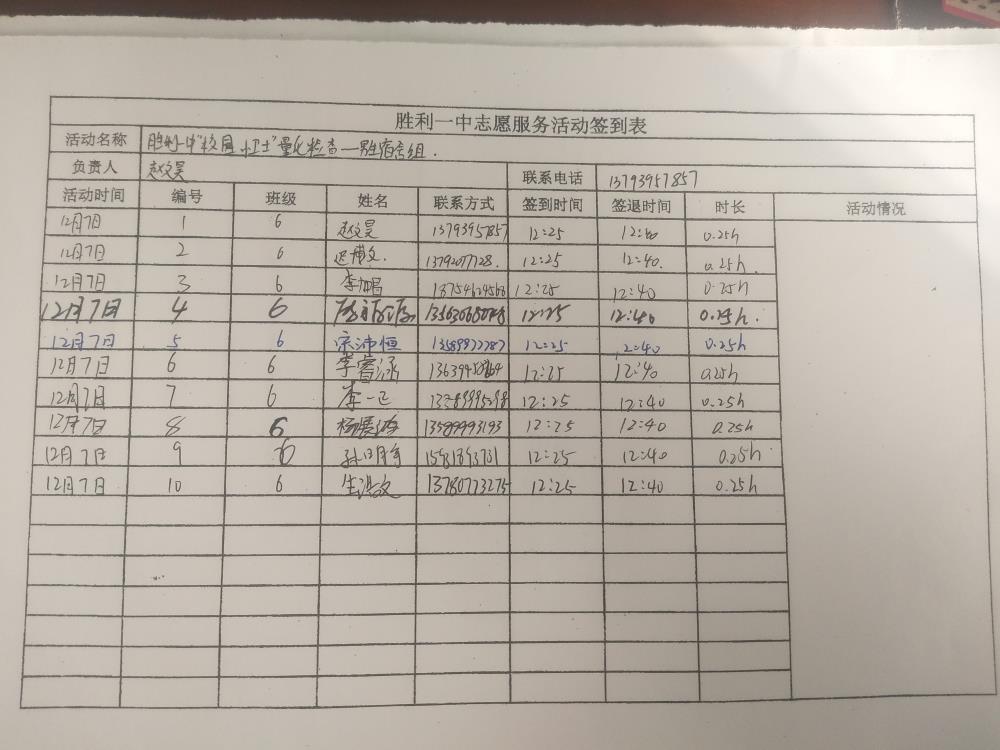 胜利一中志愿服务活动签到表
活动名称 胜利一中"校园卫士"量化检查—男生宿舍组.
负责人 赵文昊 联系电话 13793957857
活动时间 编号 班级 姓名 联系方式 签到时间 签退时间 时长 活动情况
12月7日 1 6 赵文昊 13793957857 12:25 12:40 0.25h
12月7日 2 6 迟博文. 13792077128. 12:25 12:40. 0.25h.
12月7日 3 6 12:25 12:40 0.25h
12月7日 4 6 12:25 12:40 0.25h.
12月7日 5 6 宋沛恒 12:25 12:40 0.25h
12月7日 6 6 李睿涵 12:25 12:40 0.25h
12月7日 7 6 李一正 12:25 12:40 0.25h
12月7日 8 6 13589993193 12:25 12:40 0.25h
12月7日 9 6 12:25 12:40 0.25h
12月7日 10 6 13780773275 12:25 12:40 0.25h